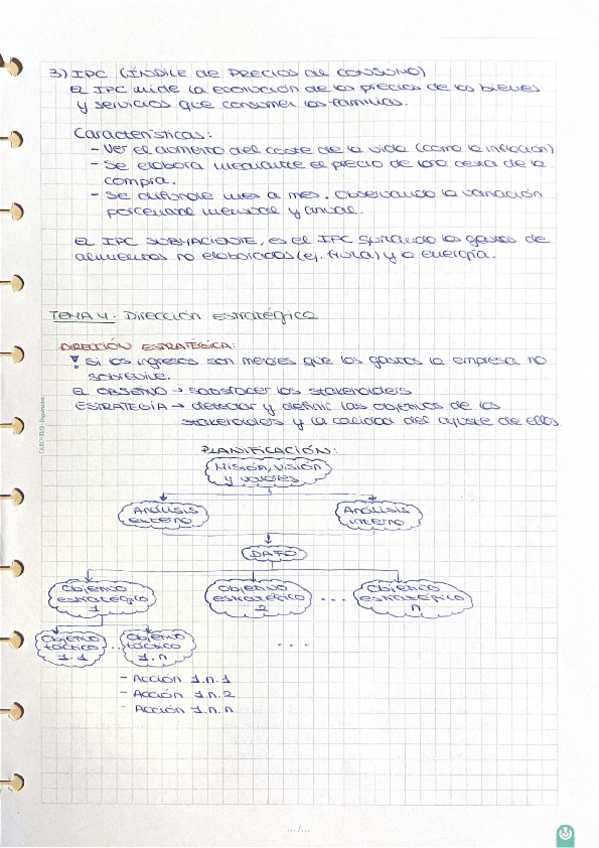 3) IPC (ÍNDICE de PRECIOS al CONSUMO)
El IPC mide la evolución de los precios de los bienes
y servicios que consumen las familias.
Características:
- Ver el aumento del coste de la vida (como la inflación)
- Se elabora mediante el precio de una cesta de la
compra.
- Se difunde mes a mes, observando la variación
porcentual mensual y anual.
El IPC SUBYACENTE, es el IPC quitando los gastos de
alimentos no elaborados (ej. fruta) y la energía.
TEMA 4: Dirección estratégica
DIRECCIÓN ESTRATÉGICA:
! Si los ingresos son menores que los gastos la empresa no
sobrevive.
El OBJETIVO → satisfacer los stakeholders
ESTRATEGIA → detectar y definir los objetivos de los
stakeholders y la calidad del ajuste de ellos.
PLANIFICACIÓN:
Misión, visión
y valores
Análisis
externo
Análisis
interno
DAFO
Objetivo
estratégico
1
Objetivo
estratégico
2
...
Objetivo
estratégico
n
Objetivo
táctico
1.1
...
Objetivo
táctico
1.n
...
- Acción 1.n.1
- Acción 1.n.2
- Acción 1.n.n
.../...